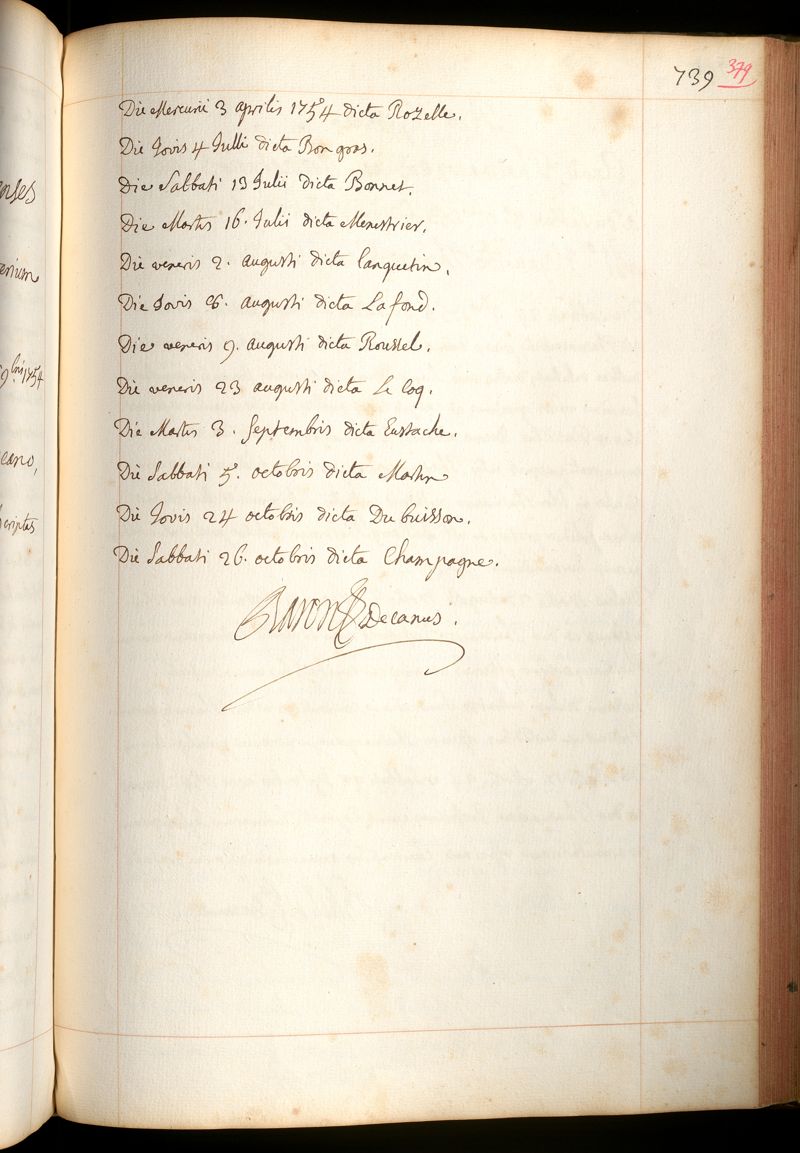 739 379
Die Mercurii 3 aprilis 1754 dicta Rozelle.
Die Jovis 4 Julii dicta Bongras.
Die Sabbati 13 Julii dicta Bonnet.
Die Martis 16. Julii dicta Menestrier.
Die veneris 2. augusti dicta Canquetin.
Die Jovis 8. augusti dicta Lafond.
Die veneris 9. augusti dicta Roussel.
Die veneris 23 augusti dicta Le Coq.
Die Martis 3. Septembris dicta Eustache.
Die Sabbati 5. octobris dicta Martin
Die Jovis 24 octobris dicta Dubuisson.
Die Sabbati 26. octobris dicta Champagne.
Baron Decanus.
enses
erium
9bris 1754
cano,
criptas